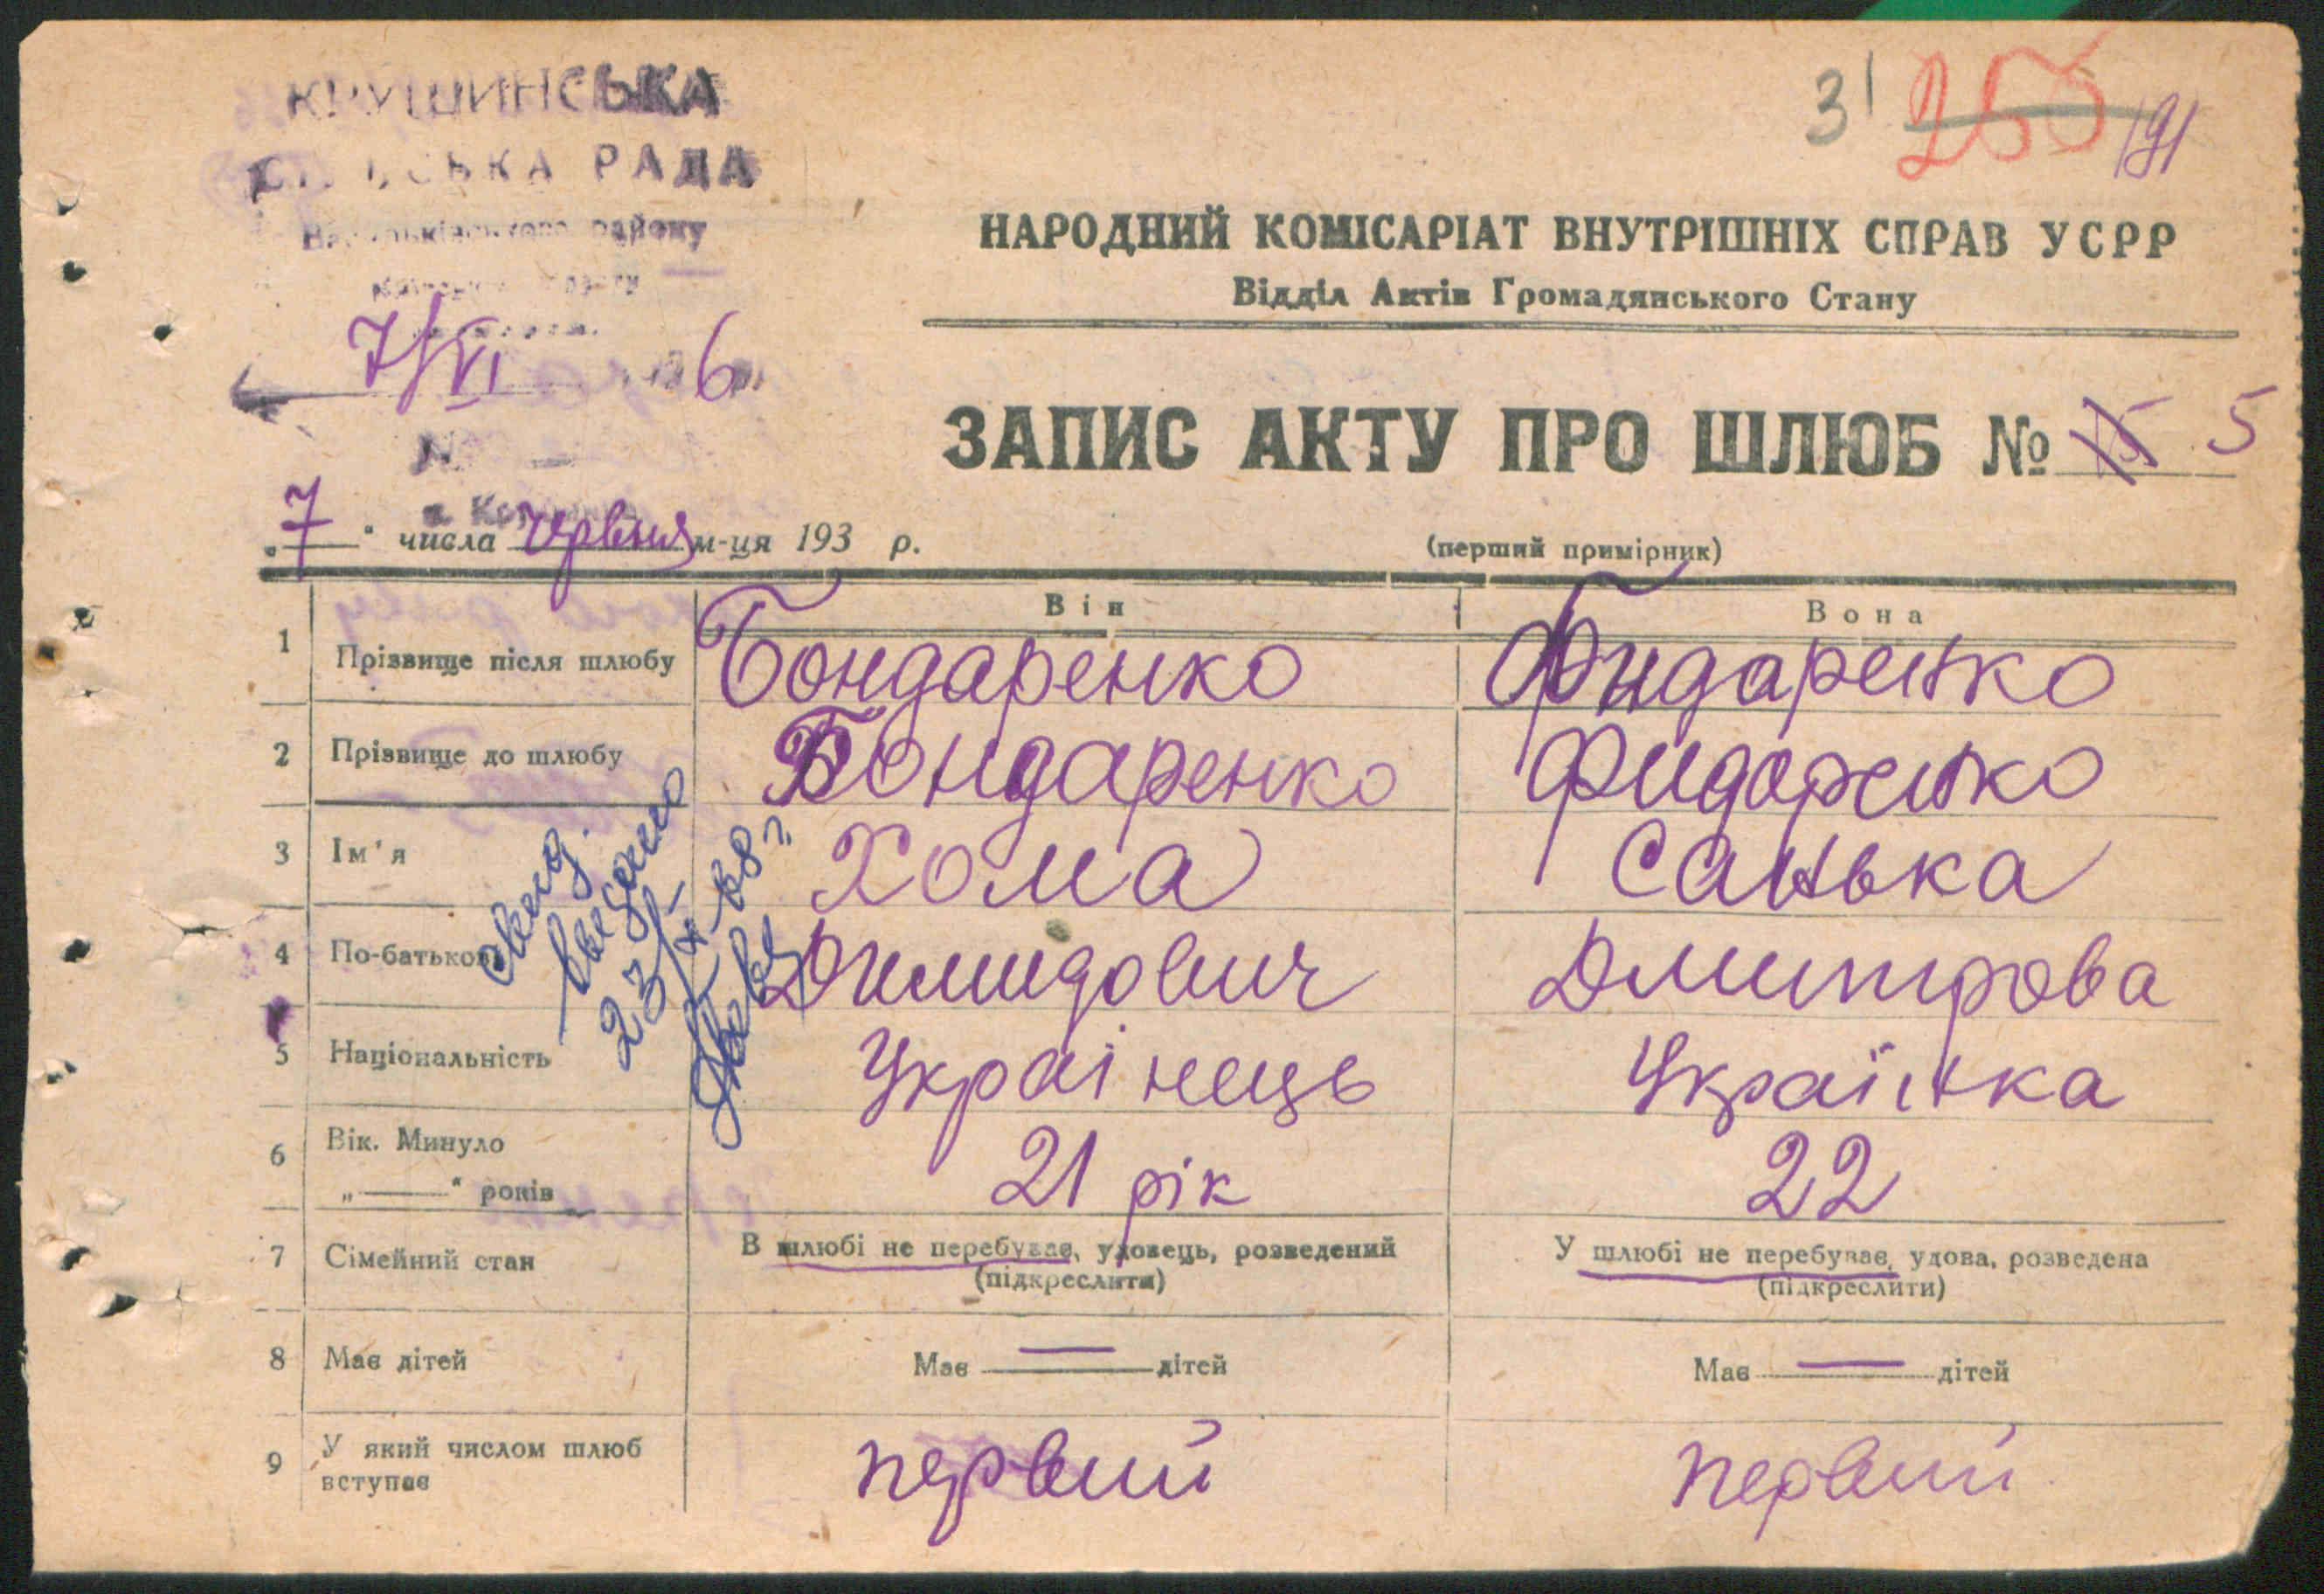 КРУШИНСЬКА
РАДА
району
31 255 191
7/VI 6
НАРОДНИЙ КОМІСАРІАТ ВНУТРІШНІХ СПРАВ УСРР
Відділ Актів Громадянського Стану
ЗАПИС АКТУ ПРО ШЛЮБ № 5
„7" числа червня м-ця 193 р.
(перший примірник)
Він Вона
1 Прізвище після шлюбу Бондаренко Бондаренко
2 Прізвище до шлюбу Бондаренко Фидоренко
3 Ім'я Хома Санька
4 По-батькові Димидович Дмитрова
5 Національність Украінець Українка
6 Вік. Минуло
„——" років 21 рік 22
7 Сімейний стан В шлюбі не перебуває, удовець, розведений У шлюбі не перебуває, удова, розведена
(підкреслити) (підкреслити)
8 Має дітей Має — дітей Має — дітей
9 У який числом шлюб
вступає первий первий
свид.
выдано
23/X-68 г.